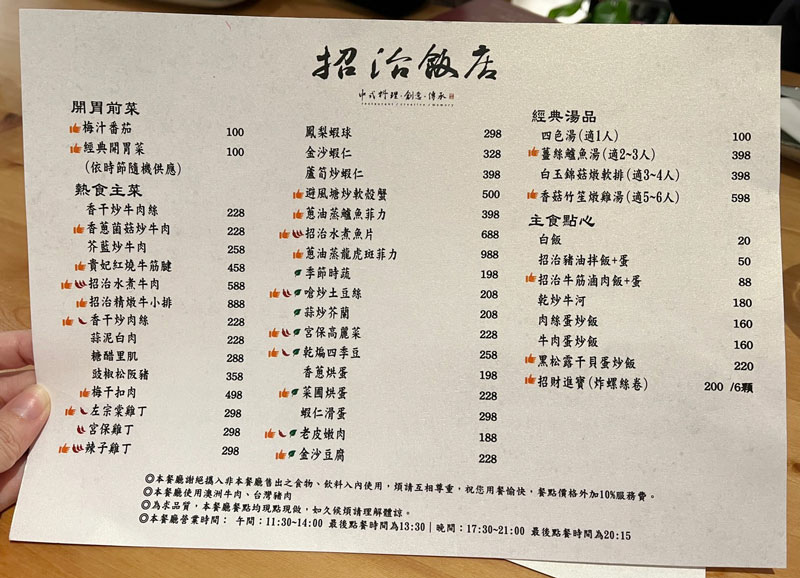 招治飯店
中式料理·創意·傳承
restaurant / creative / memory
開胃前菜
梅汁番茄 100
經典開胃菜 100
(依時節隨機供應)
熱食主菜
香干炒牛肉絲 228
香蔥菌菇炒牛肉 228
芥藍炒牛肉 258
貴妃紅燒牛筋腱 458
招治水煮牛肉 588
招治精燉牛小排 888
香干炒肉絲 228
蒜泥白肉 228
糖醋里肌 288
豉椒松阪豬 358
梅干扣肉 498
左宗棠雞丁 298
宮保雞丁 298
辣子雞丁 298
鳳梨蝦球 298
金沙蝦仁 328
蘆筍炒蝦仁 398
避風塘炒軟殼蟹 500
蔥油蒸鱸魚菲力 398
招治水煮魚片 688
蔥油蒸龍虎斑菲力 988
季節時蔬 198
嗆炒土豆絲 208
蒜炒芥蘭 208
宮保高麗菜 228
乾煸四季豆 258
香蔥烘蛋 198
菜圃烘蛋 228
蝦仁滑蛋 298
老皮嫩肉 188
金沙豆腐 228
經典湯品
四色湯(適1人) 100
薑絲鱸魚湯(適2~3人) 398
白玉錦菇燉軟排(適3~4人) 398
香菇竹笙燉雞湯(適5~6人) 598
主食點心
白飯 20
招治豬油拌飯+蛋 50
招治牛筋滷肉飯+蛋 88
乾炒牛河 180
肉絲蛋炒飯 160
牛肉蛋炒飯 160
黑松露干貝蛋炒飯 220
招財進寶(炸螺絲卷) 200 /6顆
◎本餐廳謝絕攜入非本餐廳售出之食物、飲料入內使用，煩請互相尊重，祝您用餐愉快，餐點價格外加10%服務費。
◎本餐廳使用澳洲牛肉、台灣豬肉
◎為求品質，本餐廳餐點均現點現做，如久候煩請理解體諒。
◎本餐廳營業時間： 午間：11:30~14:00 最後點餐時間為13:30｜晚間：17:30~21:00 最後點餐時間為20:15